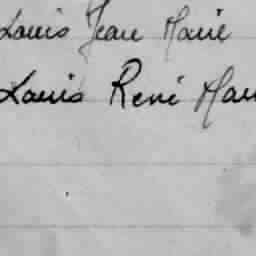 Louis Jean Marie
Louis René